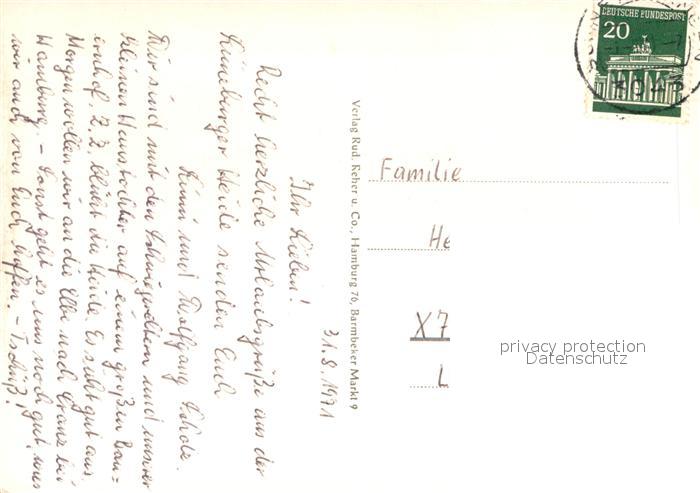 31.8.1971
Ihr Lieben!
Recht herzliche Urlaubsgrüße aus der
Lüneburger Heide senden Euch
und Wolfgang
Wir sind mit den Schwiegereltern und unserer
kleinen Haustochter auf einem großen Bau=
ernhof. Z. Z. blüht die Heide. Es sieht gut aus.
Morgen wollen wir an die Elbe nach Cranz bei
Hamburg. - Sonst geht es uns noch gut, was
wir auch von Euch hoffen. - Tschüß!
Verlag Rud. Reher u. Co., Hamburg 76, Barmbeker Markt 9
DEUTSCHE BUNDESPOST
20
Familie
He
X7
L
privacy protection
Datenschutz